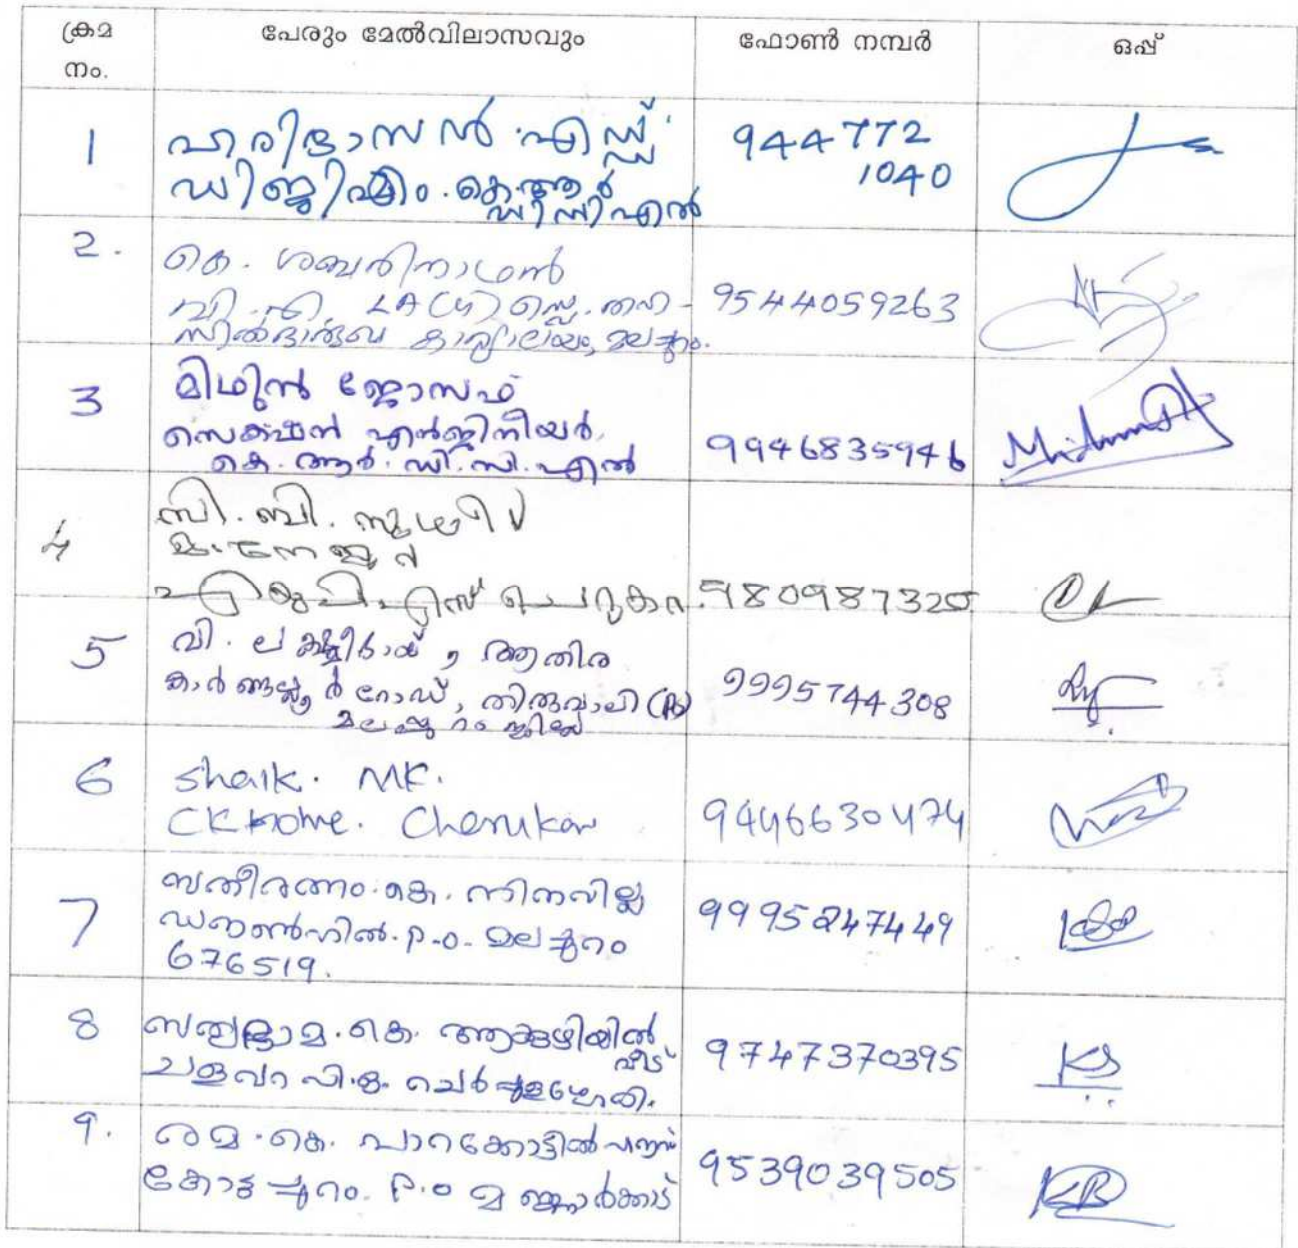 ക്രമ നം.
പേരും മേൽവിലാസവും
ഫോൺ നമ്പർ
ഒപ്പ്
1
ഹരിദാസൻ എസ്സ്
ഡിജിഎം. കെ.ആർ
ഡിസിഎൽ
944772
1040
2.
കെ. ശബരിനാഥൻ
വി.എ. LA (G) സ്പെ. തഹ-
സിൽദാരുടെ കാര്യാലയം, മലപ്പുറം.
9544059263
3
മിഥുൻ ജോസഫ്
സെക്ഷൻ എൻജിനീയർ,
കെ. ആർ. ഡി. സി. എൽ
9946835946
4
സി. ബി. സുധീർ
മാനേജർ
എ യു പി എസ് ചെറുകര.
9809873205
5
വി. ലക്ഷ്മിഭായ്, ആതിര
റോഡ്, തിരുവാലി (Po)
മലപ്പുറം ജില്ല
9995744308
6
Shaik. MK.
CK Home. Cherukar
9446630474
7
സതീരത്നം. കെ. നിനവില്ല
ഡൗൺഹിൽ. P.O. മലപ്പുറം
676519.
9995247449
8
സത്യഭാമ. കെ. ആക്കുഴിയിൽ
വീട്
ചളവറ പി.ഒ. ചെർപ്പുളശ്ശേരി.
9747370395
KS
9.
രമ. കെ. പാറക്കോട്ടിൽ ഹൗസ്
കോട്ടപ്പുറം. P.O മണ്ണാർക്കാട്
9539039505
KB